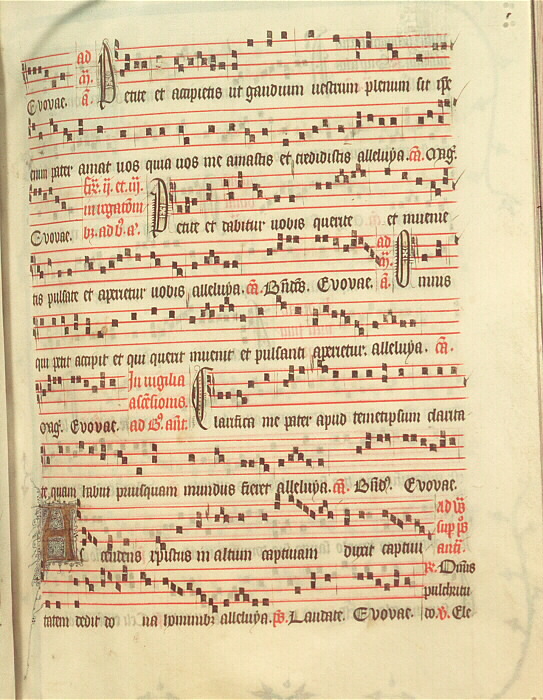 ad
m̃.
Evovae. a. Petite et accipietis ut gaudium vestrum plenum sit ip̃e
enim pater amat uos quia uos me amastis et credidistis alleluya. cã. Mag̃.
fr̃. ij. et. iij.
in rogatõib
Evovae. bz. ad b̓. a̓. Petite et dabitur uobis querite et inuenie
ad
m̃.
tis pulsate et aperietur uobis alleluya. cã. Bñtc̃s. Evovae. a. Omnis
qui petit accipit et qui querit inuenit et pulsanti aperietur. alleluya. cã.
In uigilia
ascẽsionis.
Mag̃. Evovae. ad B̓. ant̃. Clarifica me pater apud temetipsum clarita
te quam habui priusquam mundus fieret alleluya. cã. Bñd̓. Evovae.
ad ṽs
sup p̃s
Ascendens xpistus in altum captiuam duxit captiui antĩ.
R̃. Om̃is
pulchritu
tatem dedit do na hominibz alleluya. p̃s. Laudate. Evovae. do. V̓. Ele